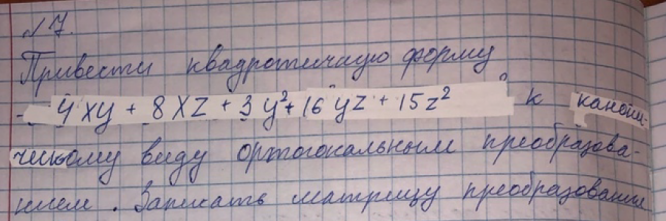 № 7.
Привести квадротичную форму
- 4xy + 8xz + 3y² + 16yz + 15z² к канони-
ческому виду ортогональным преобразова-
нием. Записать матрицу преобразования